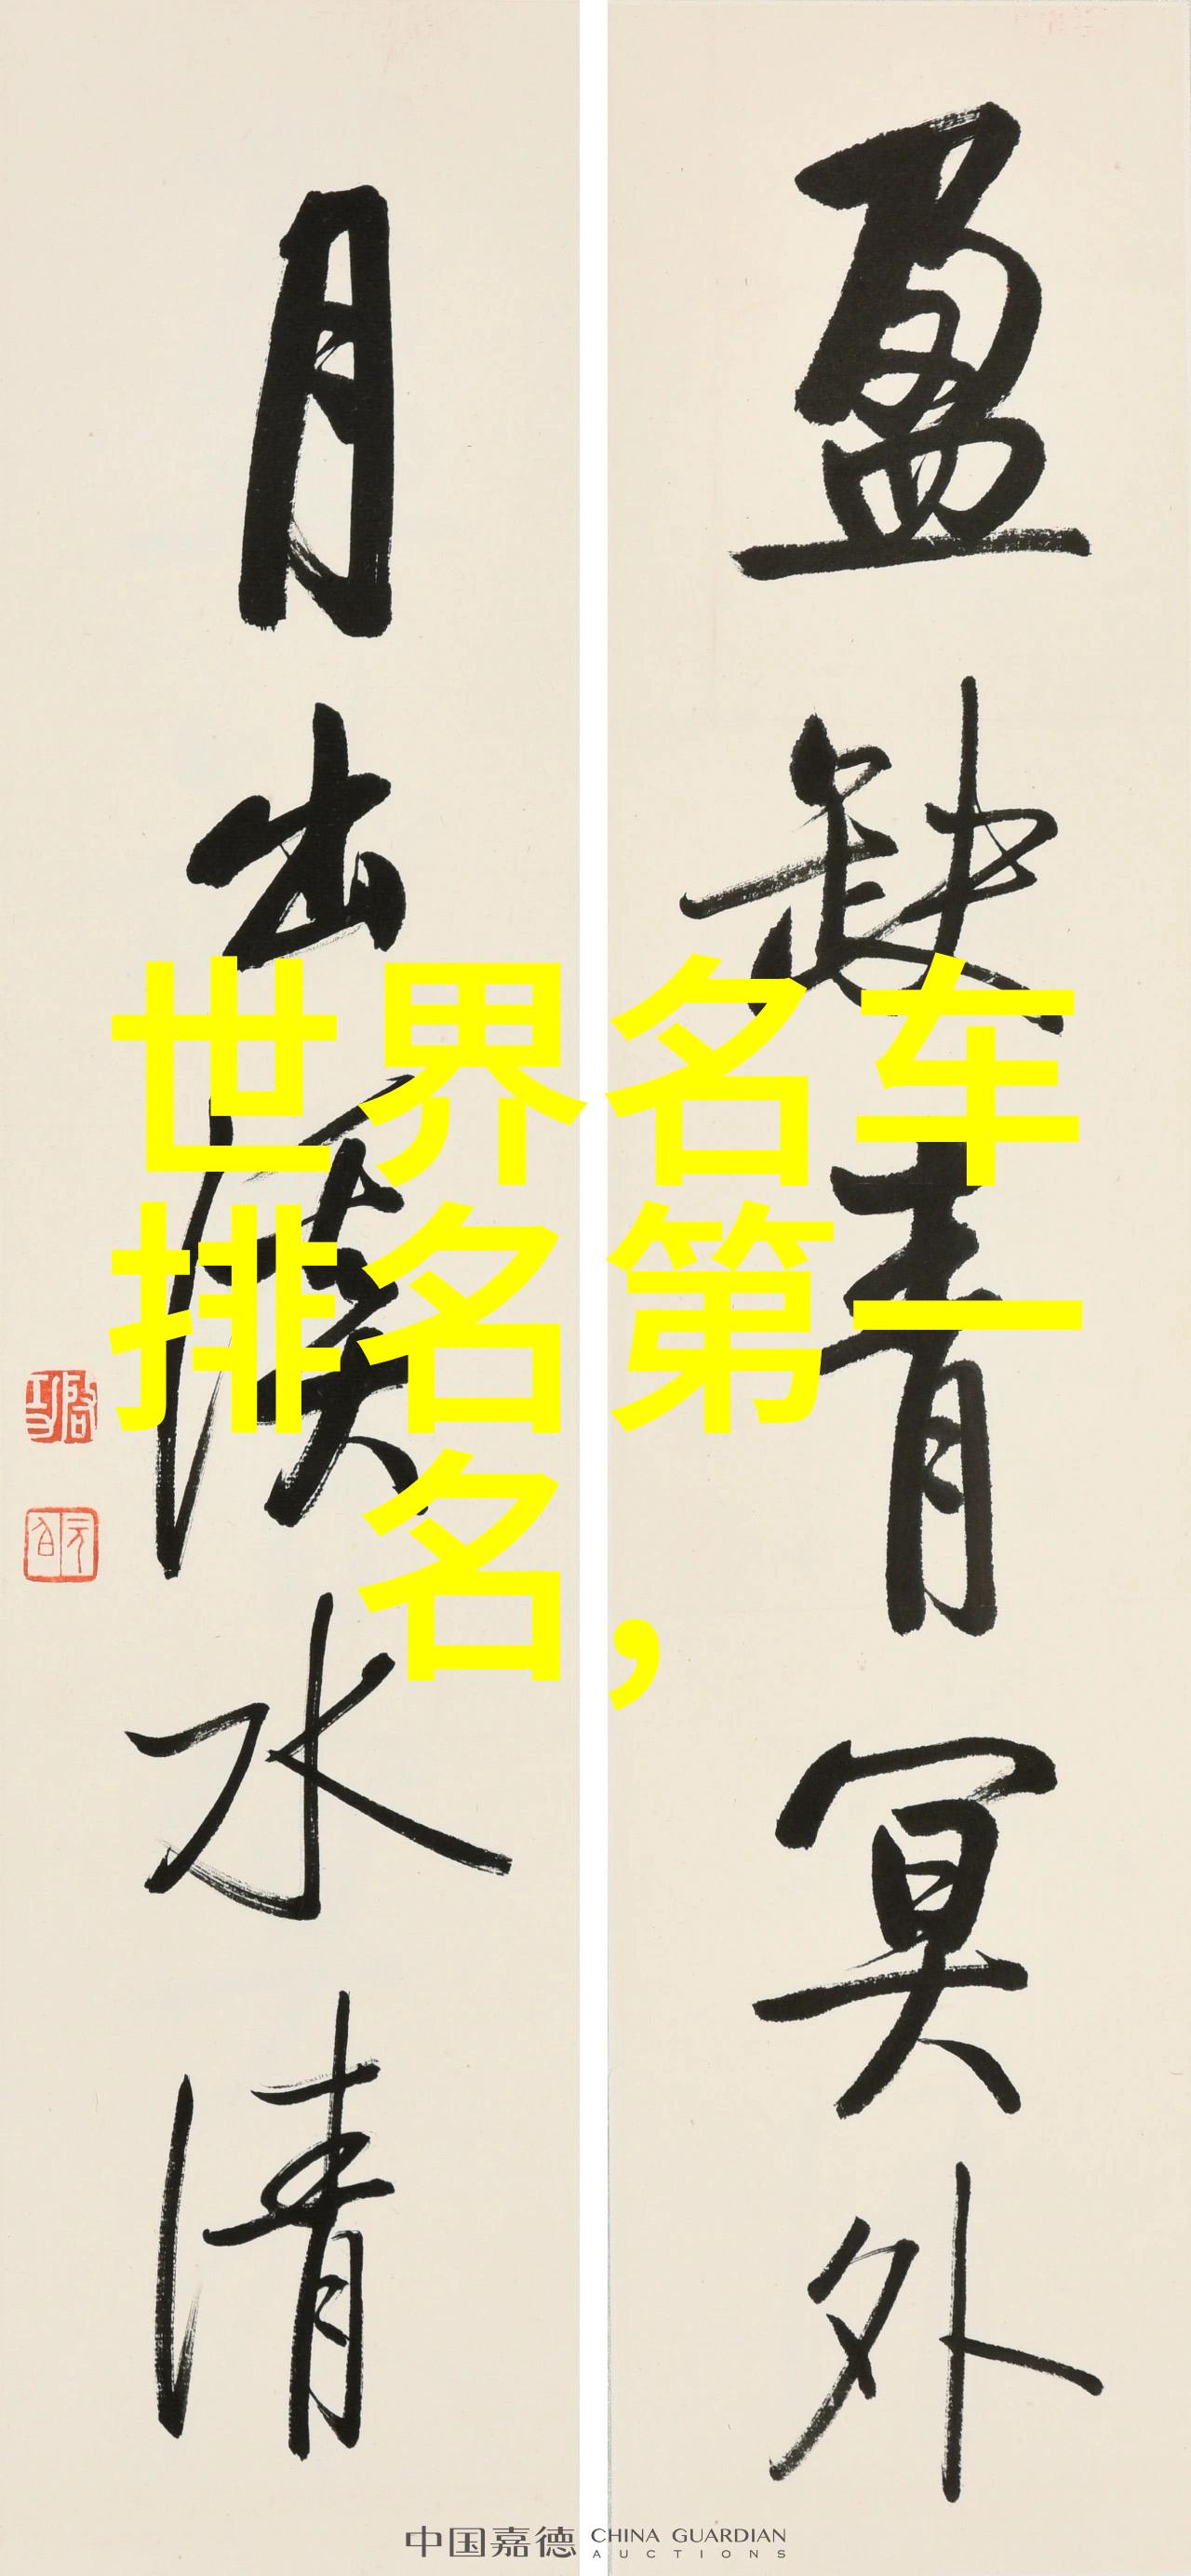 盈缺青冥外
月出溪水清
启功
元白
世界名车
排名第一
名，
中国嘉德 CHINA GUARDIAN
AUCTIONS